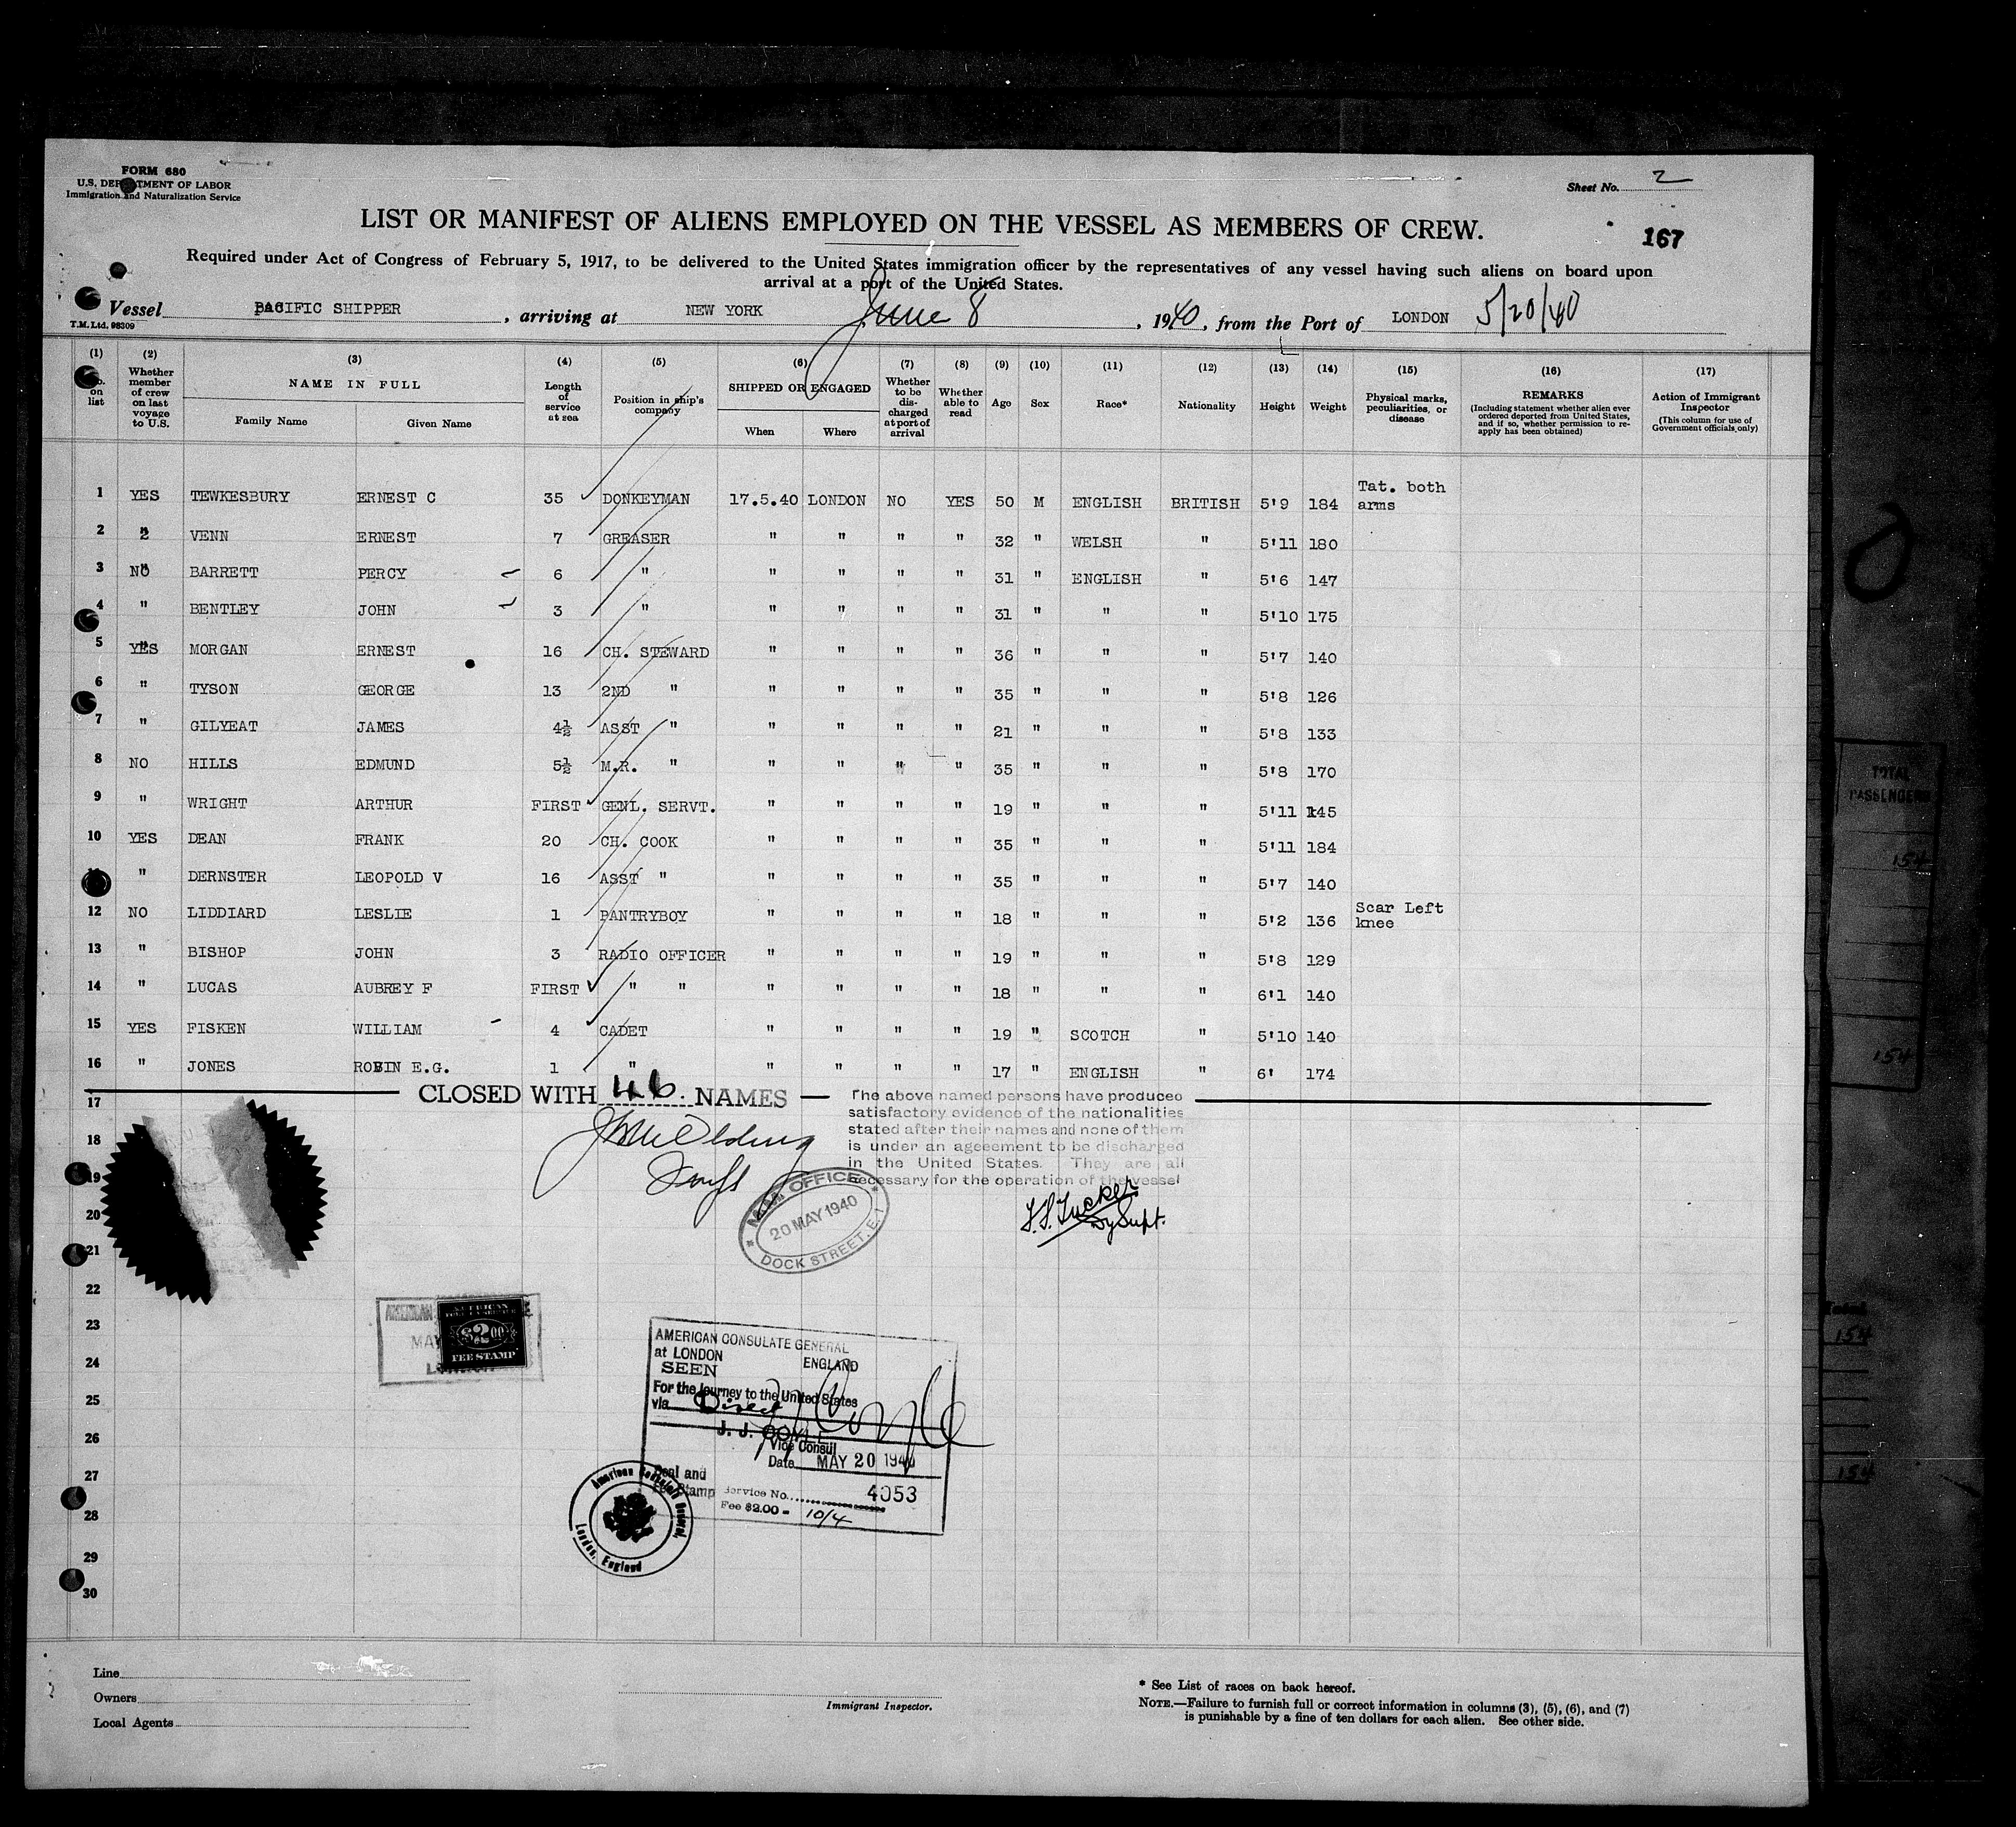 FORM 680
U.S. DEPARTMENT OF LABOR
Immigration and Naturalization Service
Sheet No. 2
LIST OR MANIFEST OF ALIENS EMPLOYED ON THE VESSEL AS MEMBERS OF CREW.
167
Required under Act of Congress of February 5, 1917, to be delivered to the United States immigration officer by the representatives of any vessel having such aliens on board upon
arrival at a port of the United States.
Vessel PACIFIC SHIPPER, arriving at NEW YORK June 8, 1940, from the Port of LONDON 5/20/40
T.M.Ltd. 98309
(1) No. on list (2) Whether member of crew on last voyage to U.S. (3) NAME IN FULL Family Name Given Name (4) Length of service at sea (5) Position in ship's company (6) SHIPPED OR ENGAGED When Where (7) Whether to be discharged at port of arrival (8) Whether able to read (9) Age (10) Sex (11) Race* (12) Nationality (13) Height (14) Weight (15) Physical marks, peculiarities, or disease (16) REMARKS (Including statement whether alien ever ordered deported from United States, and if so, whether permission to re-apply has been obtained) (17) Action of Immigrant Inspector (This column for use of Government officials only)
1 YES TEWKESBURY ERNEST C 35 DONKEYMAN 17.5.40 LONDON NO YES 50 M ENGLISH BRITISH 5'9 184 Tat. both arms
2 " VENN ERNEST 7 GREASER " " " " 32 " WELSH " 5'11 180
3 NO BARRETT PERCY 6 " " " " " 31 " ENGLISH " 5'6 147
4 " BENTLEY JOHN 3 " " " " " 31 " " " 5'10 175
5 YES MORGAN ERNEST 16 CH. STEWARD " " " " 36 " " " 5'7 140
6 " TYSON GEORGE 13 2ND " " " " " 35 " " " 5'8 126
7 " GILYEAT JAMES 4½ ASST " " " " " 21 " " " 5'8 133
8 NO HILLS EDMUND 5½ M.R. " " " " " 35 " " " 5'8 170
9 " WRIGHT ARTHUR FIRST GENL. SERVT. " " " " 19 " " " 5'11 145
10 YES DEAN FRANK 20 CH. COOK " " " " 35 " " " 5'11 184
" DERNSTER LEOPOLD V 16 ASST " " " " " 35 " " " 5'7 140
12 NO LIDDIARD LESLIE 1 PANTRYBOY " " " " 18 " " " 5'2 136 Scar Left knee
13 " BISHOP JOHN 3 RADIO OFFICER " " " " 19 " " " 5'8 129
14 " LUCAS AUBREY F FIRST " " " " " " 18 " " " 6'1 140
15 YES FISKEN WILLIAM 4 CADET " " " " 19 " SCOTCH " 5'10 140
16 " JONES ROBIN E.G. 1 " " " " " 17 " ENGLISH " 6' 174
CLOSED WITH 46 NAMES
The above named persons have produced
satisfactory evidence of the nationalities
stated after their names and none of them
is under an agreement to be discharged
in the United States. They are all
necessary for the operation of the vessel
17
18
19
20
21
22
23
24
25
26
27
28
29
30
20 MAY 1940
DOCK STREET. E.1
J.S. Tucker
Dy Supt.
AMERICAN
$2.00
FEE STAMP
MAY
AMERICAN CONSULATE GENERAL
at LONDON ENGLAND
SEEN
For the journey to the United States
via Direct
J. J. COYLE
Vice Consul
Date MAY 20 1940
Seal and
Fee Stamp
Service No. 4053
Fee $2.00 = 10/4
American Consulate General,
London, England
Line
Owners
Local Agents
Immigrant Inspector.
* See List of races on back hereof.
NOTE.—Failure to furnish full or correct information in columns (3), (5), (6), and (7)
is punishable by a fine of ten dollars for each alien. See other side.
TOTAL
PASSENGERS
154
154
154
154